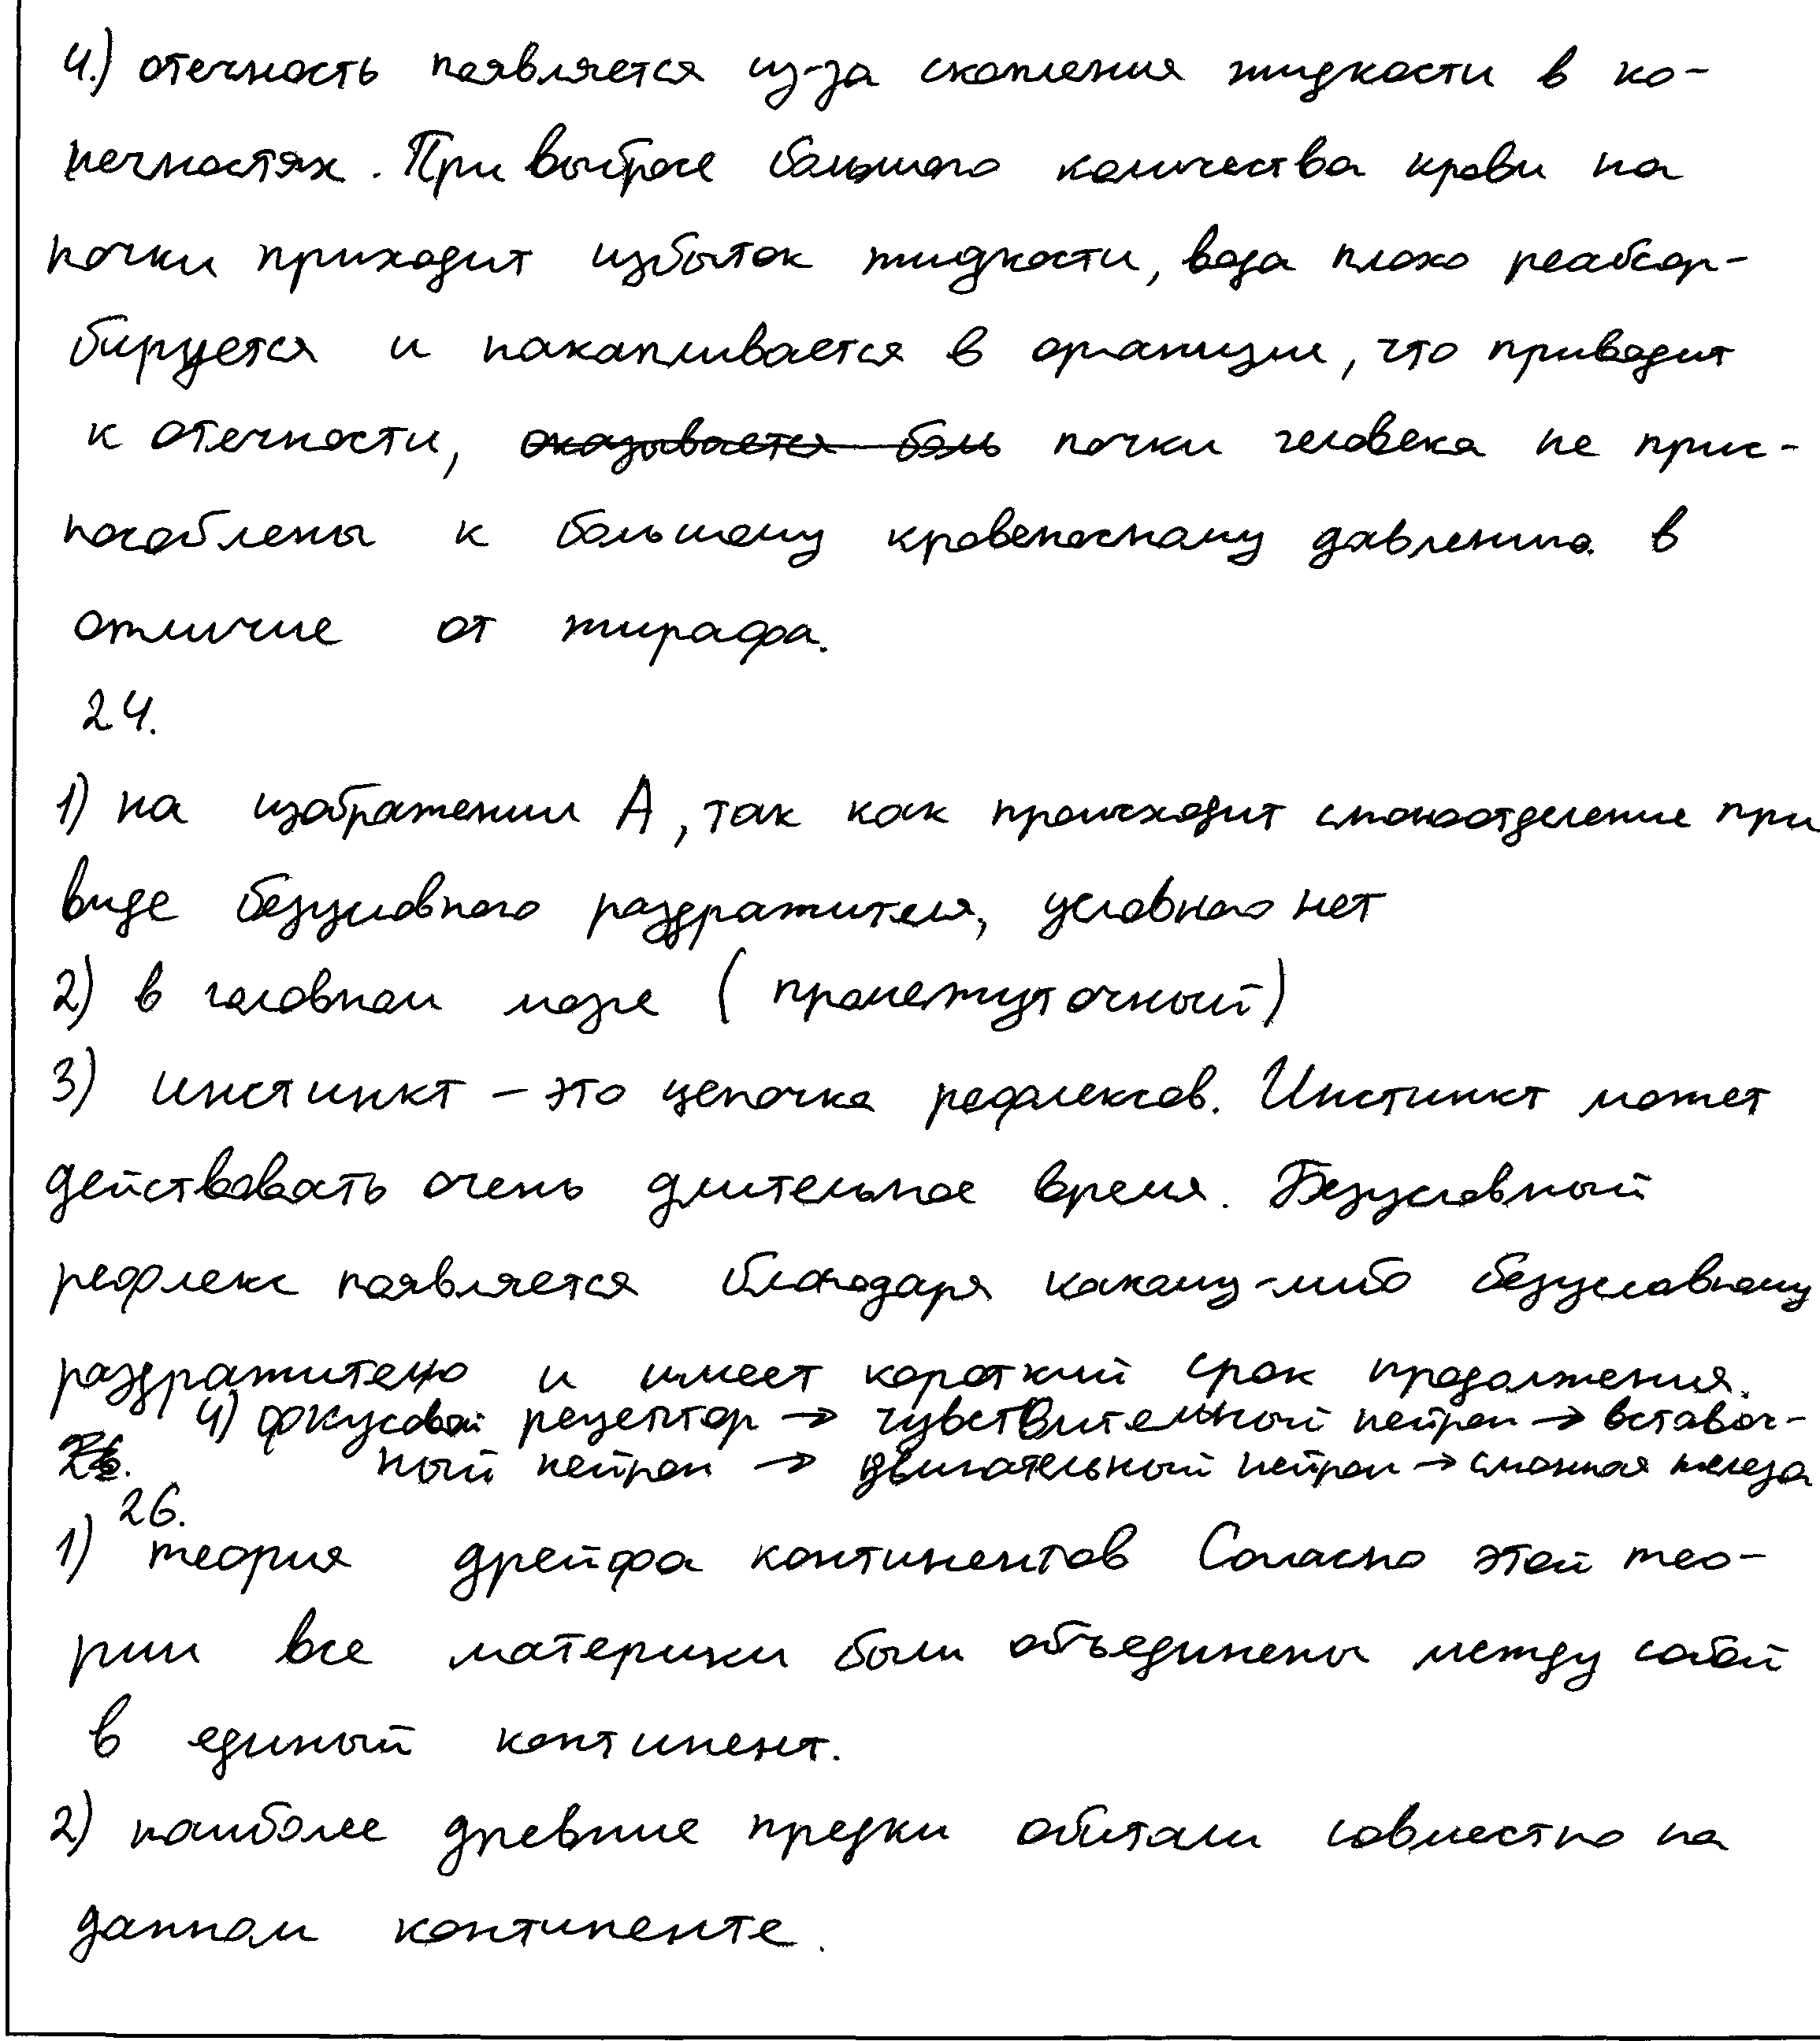 4.) отечность появляется из-за скопления жидкости в ко-
нечностях. При выбросе большого количества крови на
почки приходит избыток жидкости, вода плохо реабсор-
бируется и накапливается в организме, что приводит
к отечности, оказывается боль почки человека не прис-
пособлены к большому кровеносному давлению в
отличие от жирафа.
24.
1) на изображении А, так как происходит слюноотделение при
виде безусловного раздражителя, условного нет
2) в головном мозге (промежуточный)
3) инстинкт – это цепочка рефлексов. Инстинкт может
действовать очень длительное время. Безусловный
рефлекс появляется благодаря какому-либо безусловному
раздражителю и имеет короткий срок продолжения.
4) фкусовой рецептор → чувствительный нейрон → вставоч-
ный нейрон → двигательный нейрон → слюнная железа
26.
1) теория дрейфа континентов Согласно этой тео-
рии все материки были объединены между собой
в единый континент.
2) наиболее древние предки обитали совместно на
данном континенте.